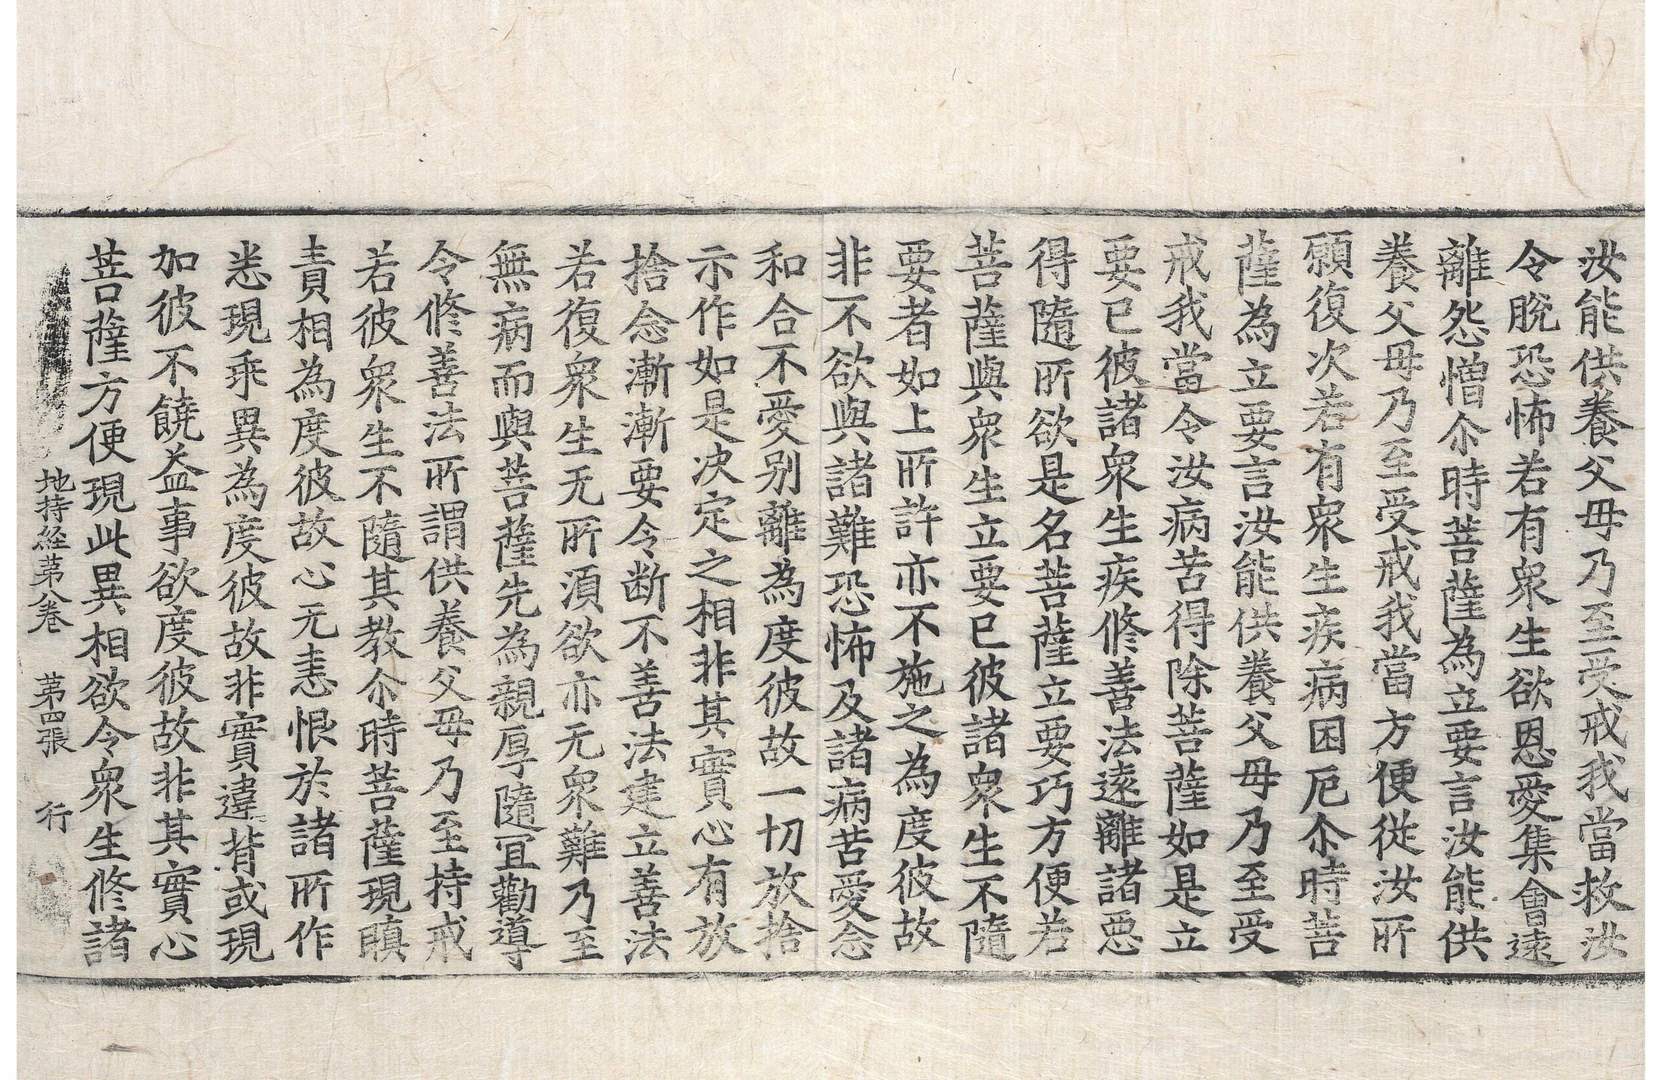 汝能供養父母乃至受戒我當救汝
令脫恐怖若有眾生欲恩愛集會遠
離怨憎尒時菩薩為立要言汝能供
養父母乃至受戒我當方便從汝所
願復次若有眾生疾病困厄尒時菩
薩為立要言汝能供養父母乃至受
戒我當令汝病苦得除菩薩如是立
要已彼諸眾生疾修善法遠離諸惡
得隨所欲是名菩薩立要巧方便若
菩薩與眾生立要已彼諸眾生不隨
要者如上所許亦不施之為度彼故
非不欲與諸難恐怖及諸病苦愛念
和合不愛別離為度彼故一切放捨
示作如是決定之相非其實心有放
捨念漸漸要令斷不善法建立善法
若復眾生无所須欲亦无眾難乃至
無病而與菩薩先為親厚隨冝勸導
令修善法所謂供養父母乃至持戒
若彼眾生不隨其教尒時菩薩現瞋
責相為度彼故心无恚恨於諸所作
悉現乖異為度彼故非實違背或現
加彼不饒益事欲度彼故非其實心
菩薩方便現此異相欲令眾生修諸
地持經苐八卷 苐四張 行